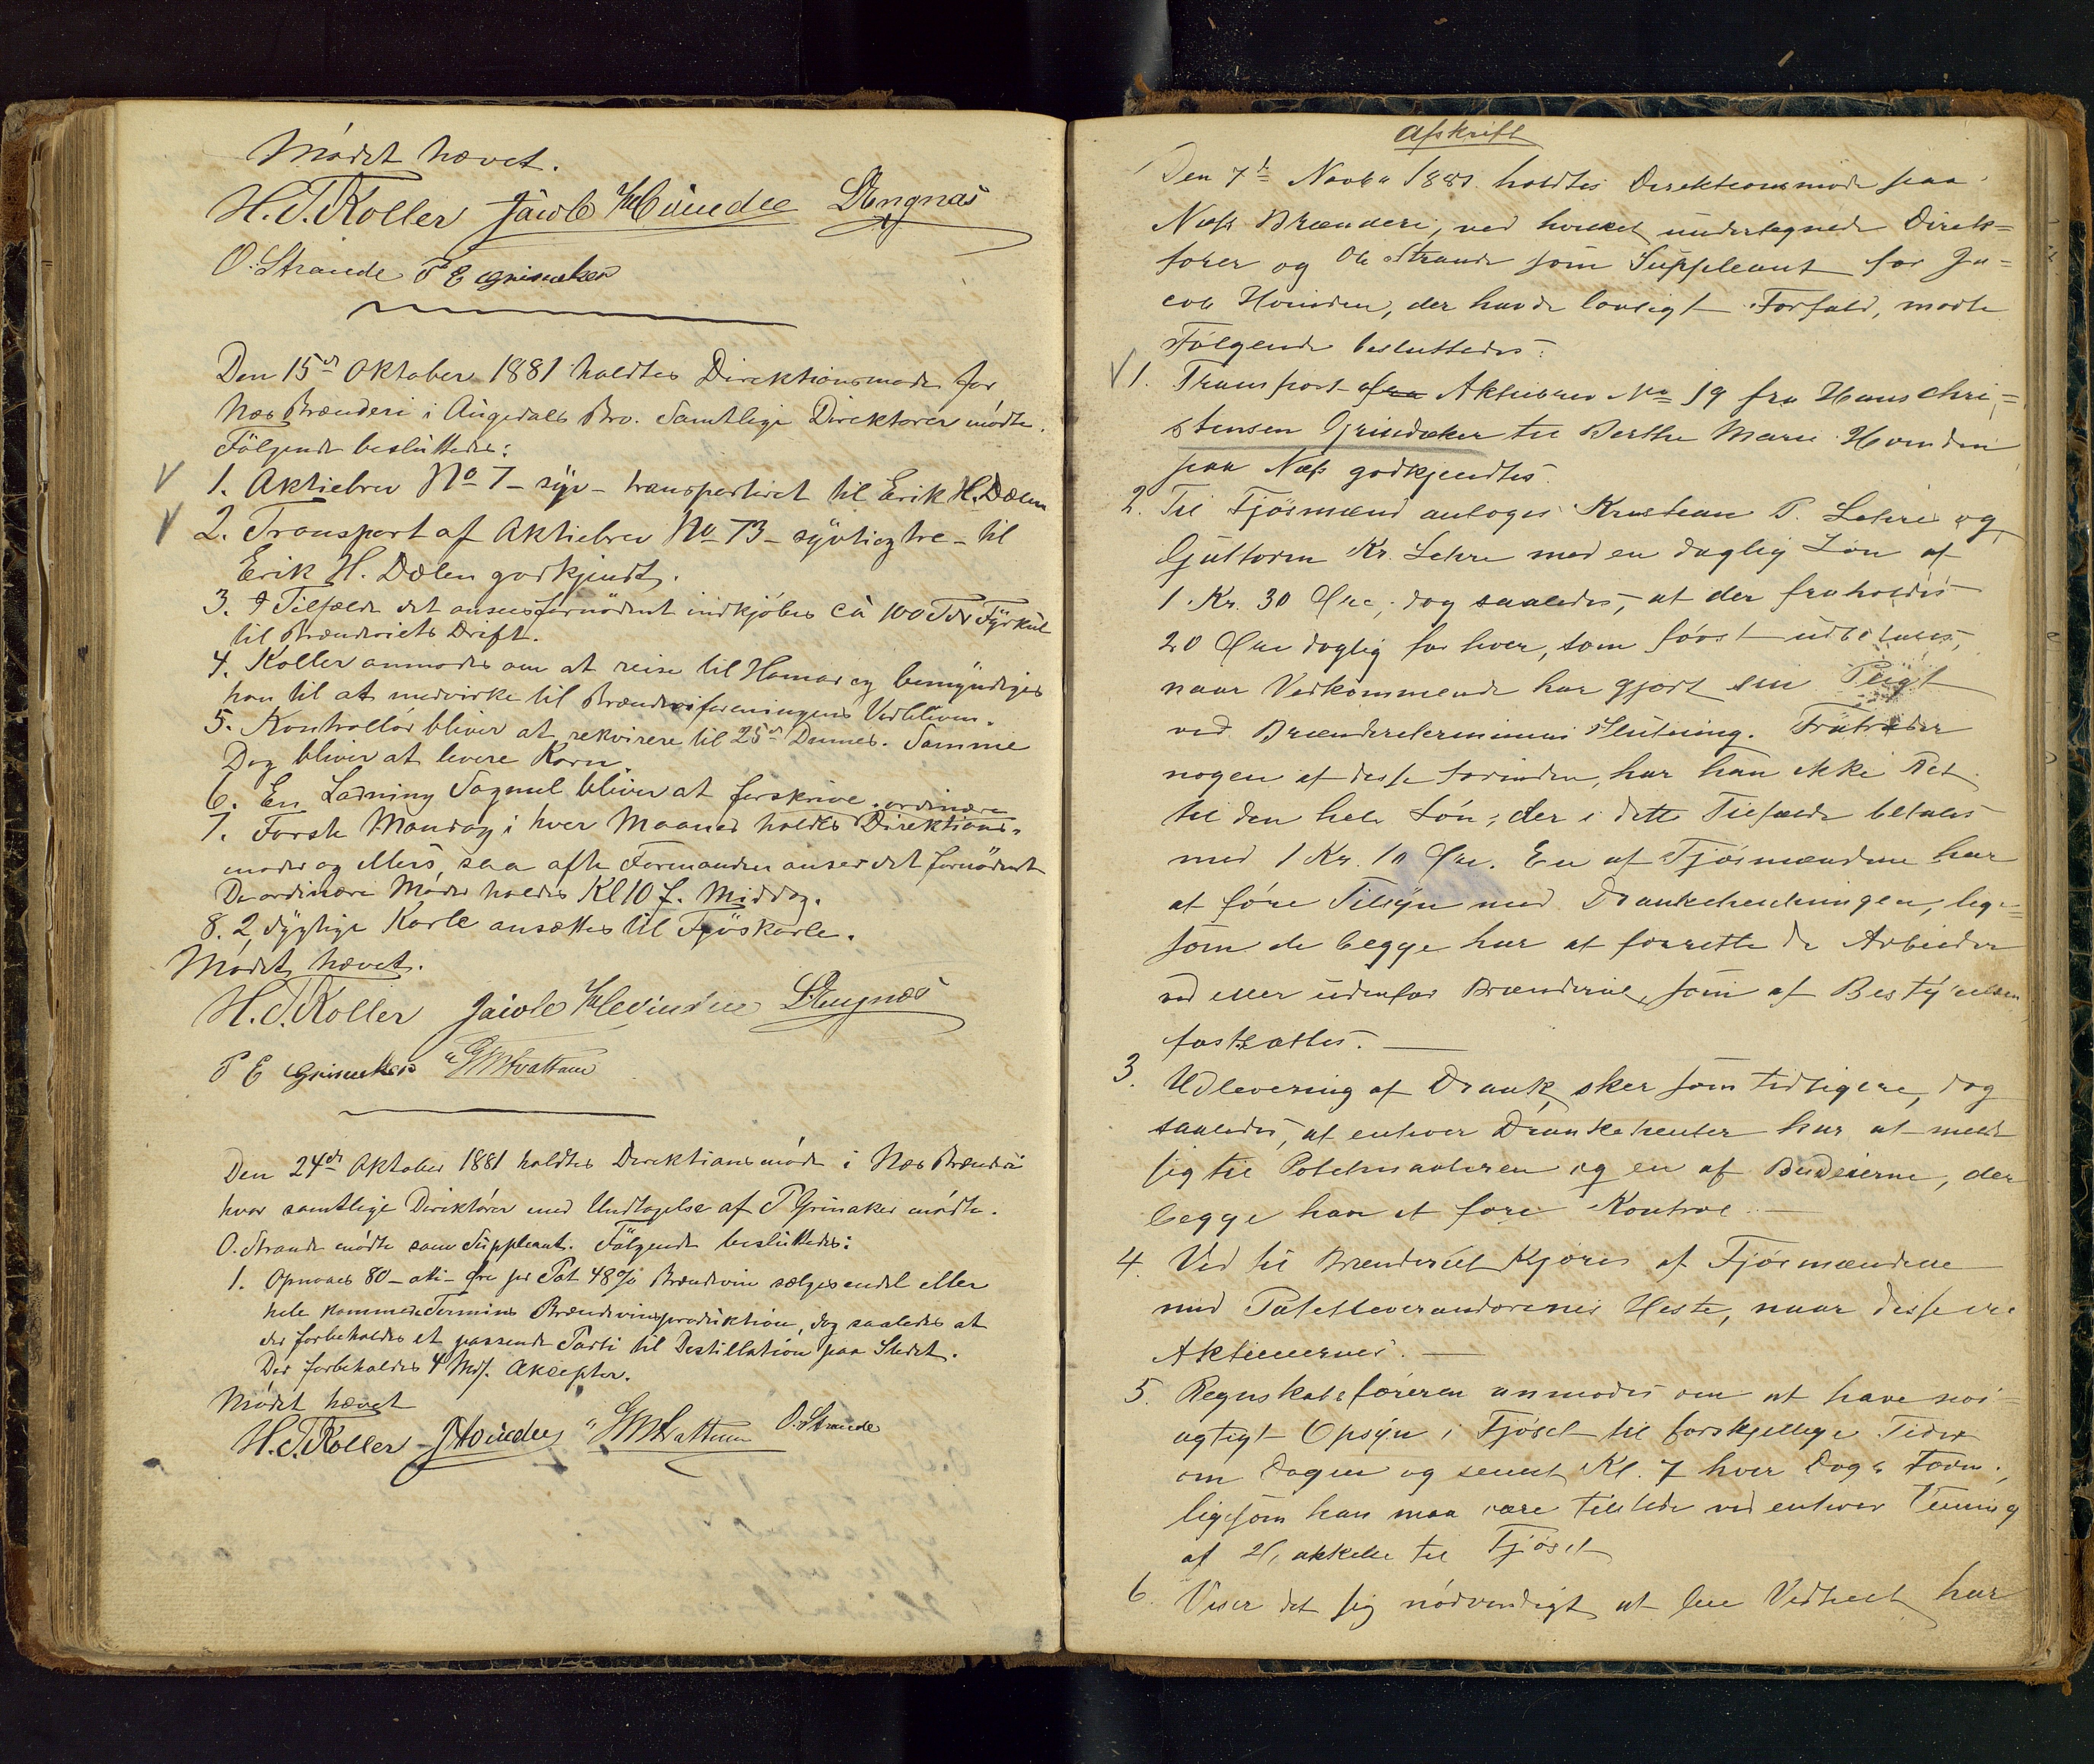 Mödet hævet.
H. T. Koller Jacob Hvinden L. Engnæs
O. Strande P E Grinaker
Den 15de Oktober 1881 holdtes Direktionsmøde for
Næs Brænderi i Augedals Bro. Samtlige Direktörer mödte.
Fölgende besluttedes:
1. Aktiebrev No 7 – syv – transporteret til Erik H. Dælen
2. Transport af Aktiebrev No 73 – syvtiogtre – til
Erik H. Dælen godkjendt.
3. I Tilfælde det ansees fornödent indkjöbes ca 100 Tdr Fyrkul
til Brænderiets Drift.
4. Koller anmodes om at reise til Hamar og bemyndiges
han til at medvirke til Brænderiforeningens Vedbliven.
5. Kontrollör bliver at rekvirere til 25de Dennes. Samme
Dag bliver at levere Korn.
6. En Ladning Sagmel bliver at forskrive.
ordinære
7. Förste Mandag i hver Maaned holdes Direktions-
møder og ellers saa ofte Formanden anser det fornödent
De ordinære Möder holdes Kl 10 f. Middag.
8. 2 dygtige Karle ansættes til Fjöskarle.
Mödet hævet.
H. T. Koller Jacob Hvinden L. Engnæs
P E Grinaker G M Hvattum
Den 24de Oktober 1881 holdtes Direktionsmöde i Næs Brænderi
hvor samtlige Direktörer med Undtagelse af P Grinaker mödte.
O. Strande mödte som Suppleant. Fölgende besluttedes:
1. Opnaaes 80 – otti – Öre pr Pot 48% Brændevin sælges endel eller
hele kommende Termins Brændevinsproduktion, dog saaledes at
der forbeholdes et passende Parti til Destillation paa Stedet.
Der forbeholdes 4 Mds. Aksepter.
Mödet hævet
H. T. Koller J Hvinden G M Hvattum O. Strande
Afskrift
Den 7de Novbr 1881 holdtes Direktionsmöde paa
Næss Brænderi, ved hvilket undertegnede Direk=
törer og Ole Strande som Suppleant for Ja=
cob Hvinden, der havde lovligt Forfald, mödte
Fölgende besluttedes:
1. Transport af fra Aktiebrev No 19 fra Hans Chri=
stensen Grinaker til Berthe Marie Hvinden
paa Næss godkjendtes.
2. Til Fjösmænd antoges Kristian P. Lehre og
Guttorm Kr. Lehre med en daglig Lön af
1 Kr. 30 Öre, dog saaledes, at der fraholdes
20 Öre daglig for hver, som först udbetales,
naar Vedkommende har gjort sin Pligt
ved Brænderiterminens Slutning. Fratræder
nogen af disse forinden, har han ikke Ret
til den hele Lön; der i dette Tilfælde betales
med 1 Kr. 10 Öre. En af Fjösmændene har
at före Tilsyn med Drankehentningen, lige=
som de begge har at forrette de Arbeider
ved eller udenfor Brænderiet, som af Bestyrelsen
fastsættes.
3. Udlevering af Drank sker som tidligere, dog
saaledes, at enhver Drankehenter har at melde
sig til Potetmaaleren og en af Budeierne, der
begge har at före Kontrol.
4. Ved til Brænderiet kjöres af Fjösmændene
med Potetleverandörernes Heste, naar disse ere
Aktieeiernes.
5. Regnskabsföreren anmodes om at have nöi=
agtigt Opsyn i Fjöset til forskjellige Tider
om Dagen og senest Kl. 7 hver Dags Form.,
ligesom han maa være tilstede ved enhver
af til Fjöset
6. Viser det sig nödvendigt at har